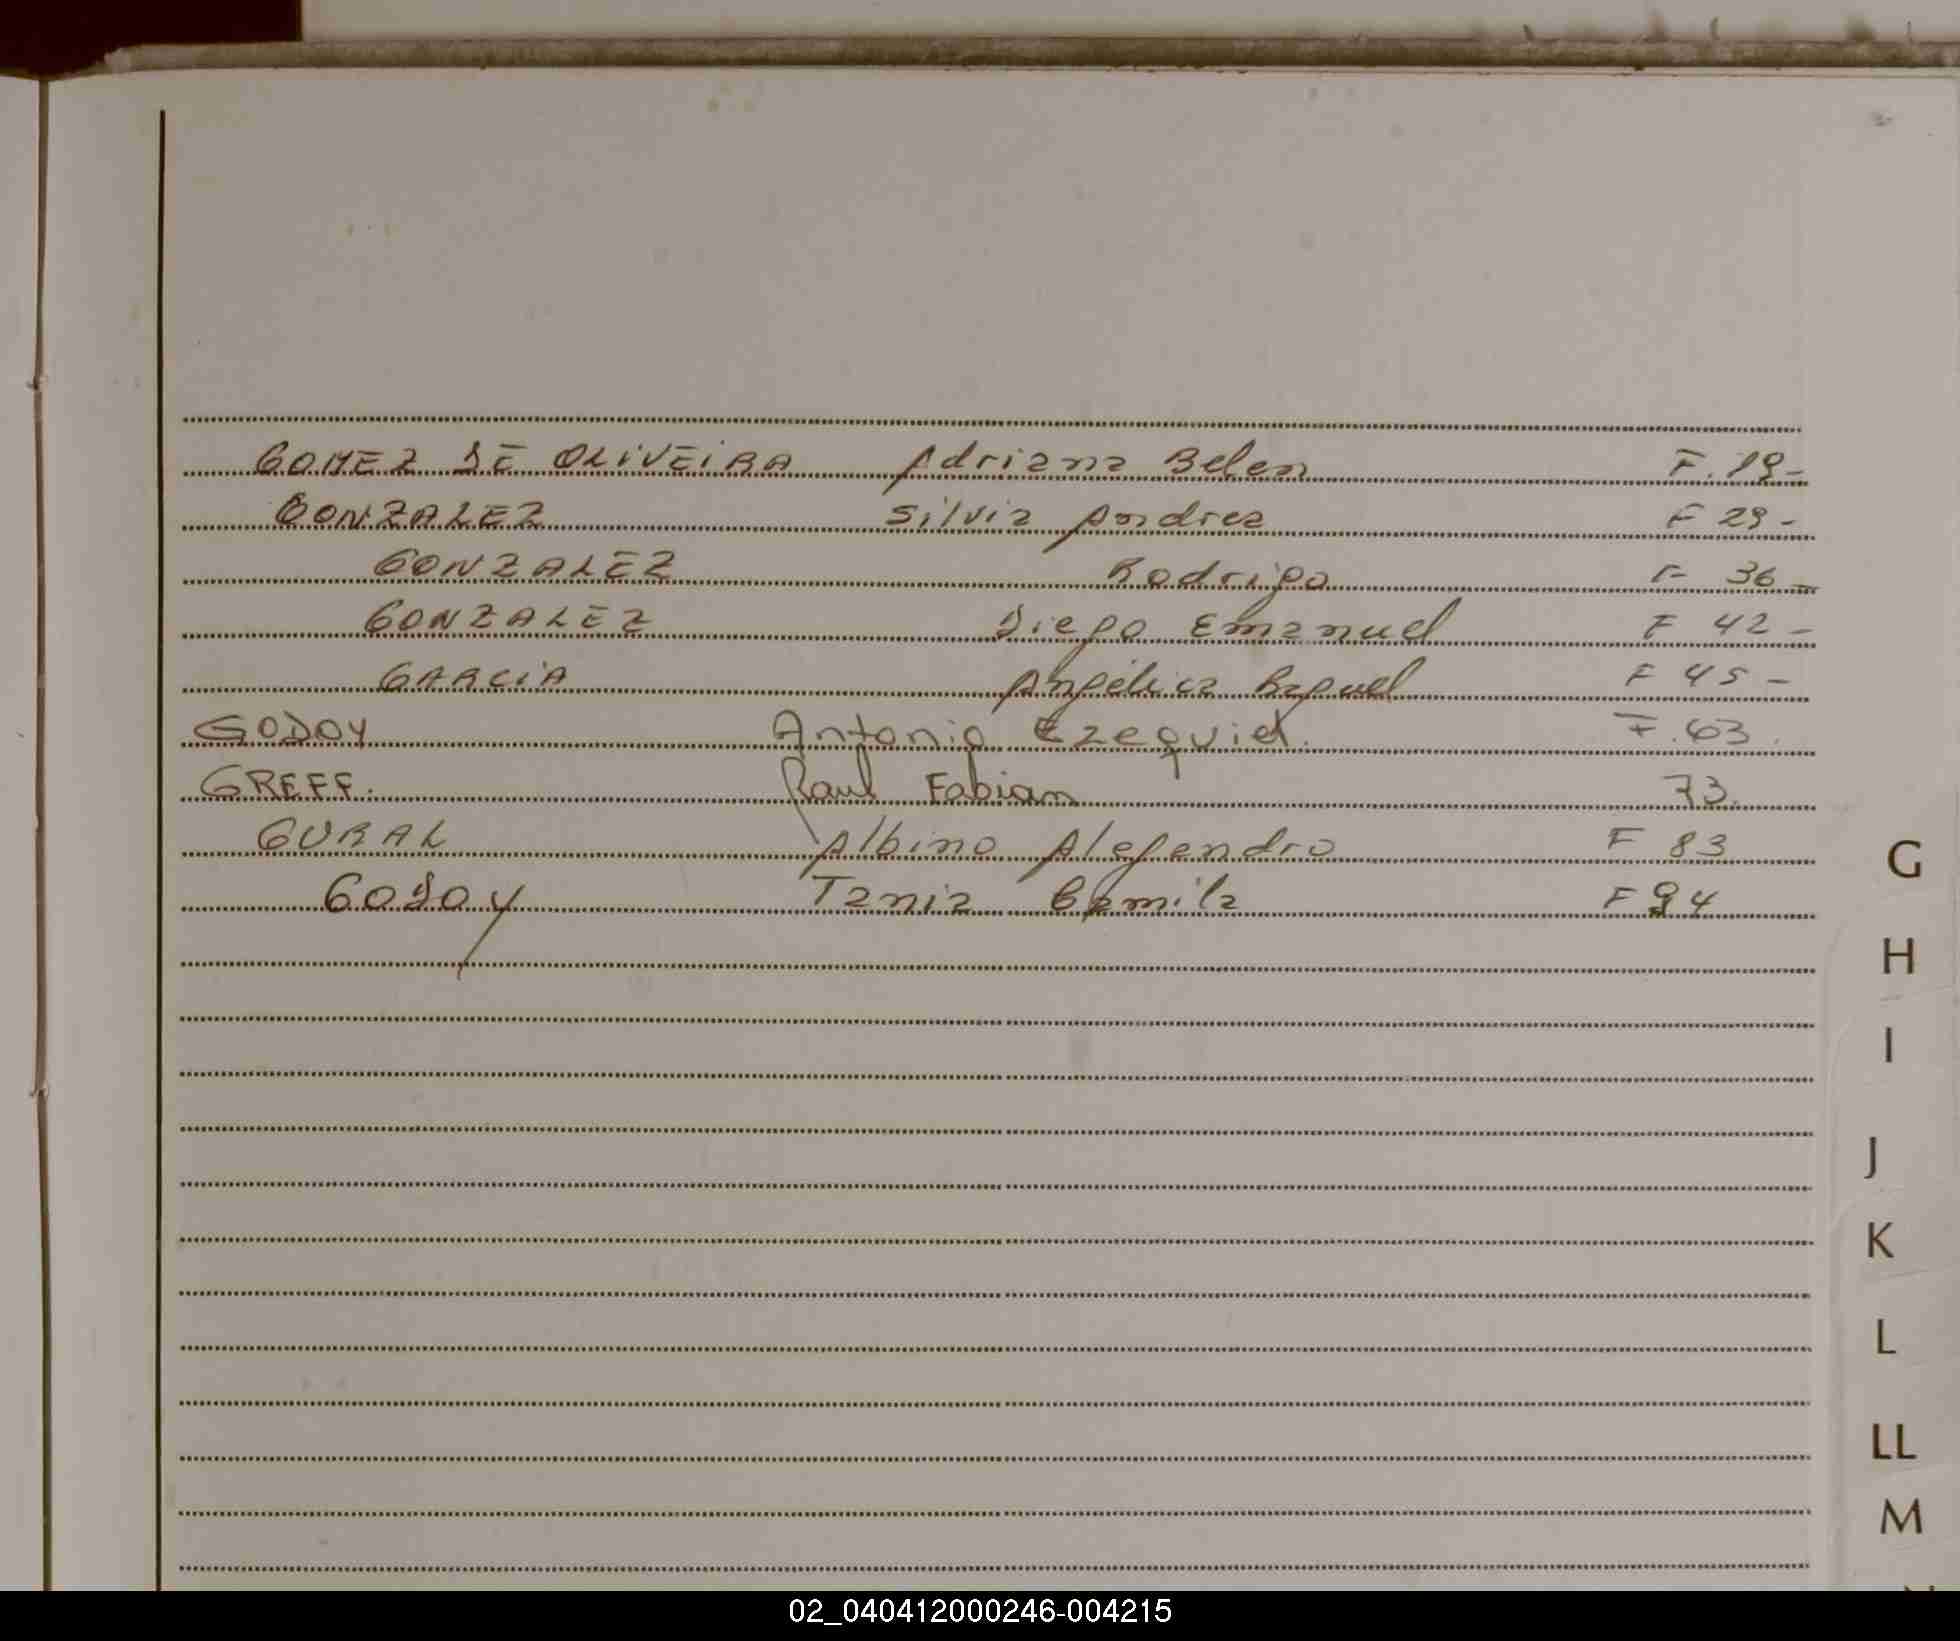 GOMEZ DE OLIVEIRA Adriana Belen F. 19-
GONZALEZ Silvia Andrea F 29-
GONZALEZ Rodrigo F 36-
GONZALEZ Diego Emanuel F 42-
GARCIA Angélica Raquel F 45-
GODOY Antonio Ezequiel. F. 63.
GREFF. Raul Fabian 73.
GURAL Albino Alejandro F 83
GODOY Tania Camila F 94
G
H
I
J
K
L
LL
M
02_040412000246-004215